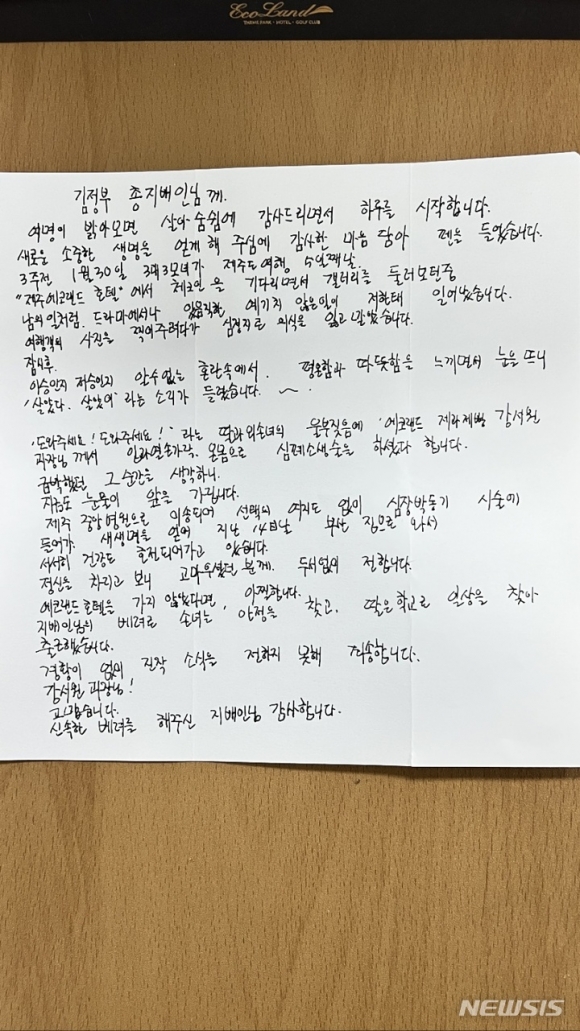 Eco Land
THEME PARK · HOTEL · GOLF CLUB
김정부 총지배인님께.
여명이 밝아오면 살아 숨쉼에 감사드리면서 하루를 시작합니다.
새로운 소중한 생명을 얻게 해 주심에 감사한 마음 담아 펜을 들었습니다.
3주전 1월 30일 3대 3모녀가 제주도여행, 수일째날
"제주에코랜드 호텔"에서 체크인을 기다리면서 갤러리를 둘러보던중
남의일처럼. 드라마에서나 있음직한 예기치 않은일이 저한테 일어났습니다.
여행객의 사진을 찍어주려다가 심정지로 의식을 잃고 말았습니다.
잠시후.
이승인지 저승인지 알수없는 혼란속에서. 평온함과 따뜻함을 느끼면서 눈을 뜨니
'살았다. 살았어' 라는 소리가 들렸습니다. ~.
'도와주세요! 도와주세요!' 라는 딸과 외손녀의 울부짖음에 '에코랜드 제라제빵 강서원
과장님께서 온몸으로 심폐소생술을 하셨다 합니다.
급박했던 그 순간을 생각하니.
지금도 눈물이 앞을 가립니다.
제주 중앙병원으로 이송되어 선택의 여지도 없이 심장박동기 시술에
들어가 새생명을 얻어 지난 14일날 부산 집으로 와서
서서히 건강도 호전되어가고 있습니다.
정신을 차리고 보니 고마우셨던 분께. 두서없이 전합니다.
에코랜드 호텔을 가지 않았다면, 아찔합니다.
지배인님의 배려로 손녀는, 안정을 찾고, 딸은 학교로 일상을 찾아
출근했습니다.
경황이 없이 진작 소식을 전하지 못해 죄송합니다.
강서원 과장님!
고맙습니다.
신속한 배려를 해주신 지배인님 감사합니다.
NEWSIS